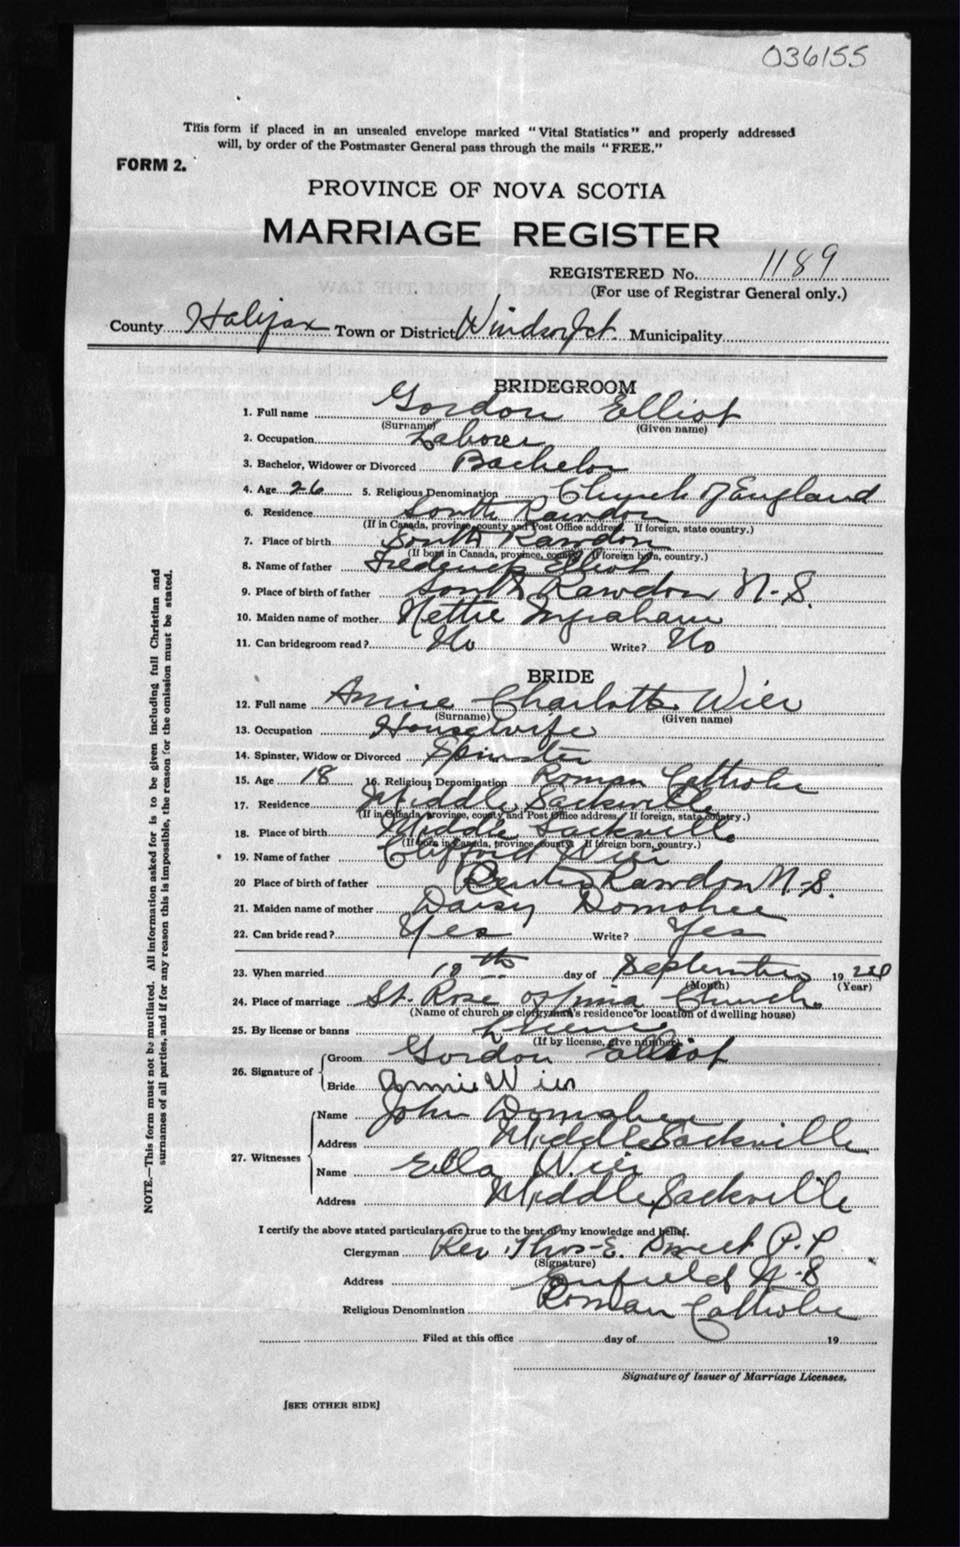 036155
This form if placed in an unsealed envelope marked "Vital Statistics" and properly addressed
will, by order of the Postmaster General pass through the mails "FREE."
FORM 2.
PROVINCE OF NOVA SCOTIA
MARRIAGE REGISTER
REGISTERED No. 1189
(For use of Registrar General only.)
County Halifax Town or District Windsor Jct. Municipality
BRIDEGROOM
1. Full name Gordon Elliot
(Surname) (Given name)
2. Occupation Laborer
3. Bachelor, Widower or Divorced Bachelor
4. Age 26 5. Religious Denomination Church of England
6. Residence South Rawdon
(If in Canada, province, county and Post Office address. If foreign, state country.)
7. Place of birth South Rawdon
(If born in Canada, province, county. If foreign born, country.)
8. Name of father Frederick Elliot
9. Place of birth of father South Rawdon N.S.
10. Maiden name of mother Nettie
11. Can bridegroom read? No Write? No
BRIDE
12. Full name Annie Charlotte Wier
(Surname) (Given name)
13. Occupation Housewife
14. Spinster, Widow or Divorced Spinster
15. Age 18 16. Religious Denomination Roman Catholic
17. Residence Middle Sackville
(If in Canada, province, county and Post Office address. If foreign, state country.)
18. Place of birth Middle Sackville
(If born in Canada, province, county. If foreign born, country.)
19. Name of father Clifford Wier
20 Place of birth of father Rawdon N.S.
21. Maiden name of mother Daisy Donohee
22. Can bride read? Yes Write? Yes
23. When married 18th day of September 19
(Month) (Year)
24. Place of marriage St. Rose of Lima Church
(Name of church or clergyman's residence or location of dwelling house)
25. By license or banns License
(If by license, give number)
26. Signature of Groom Gordon Elliot
Bride Annie Wier
27. Witnesses Name John
Address Middle Sackville
Name Ella Wier
Address Middle Sackville
I certify the above stated particulars are true to the best of my knowledge and belief.
Clergyman Rev. Thos. E. P.P.
(Signature)
Address Enfield N.S
Religious Denomination Roman Catholic
Filed at this office day of 19
Signature of Issuer of Marriage Licenses.
[SEE OTHER SIDE]
NOTE.—This form must not be mutilated. All information asked for is to be given including full Christian and
surnames of all parties, and if for any reason this is impossible, the reason for the omission must be stated.